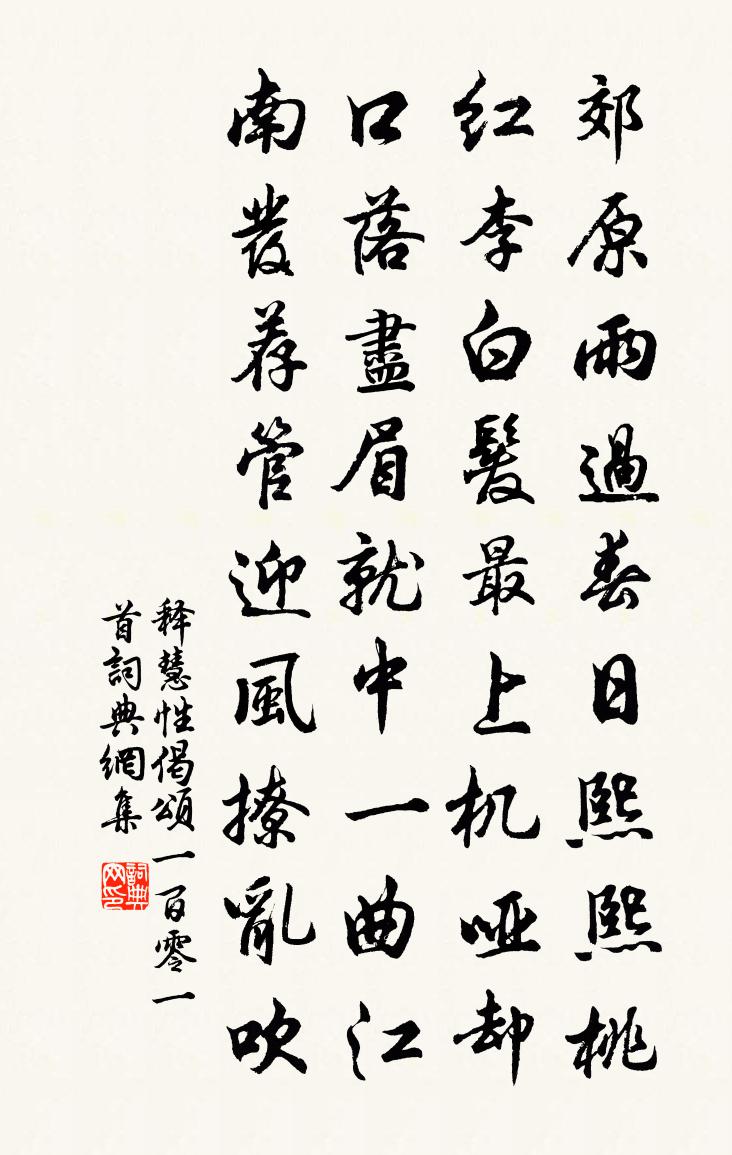 郊原雨過春日熙熙桃
紅李白髮最上机啞却
口落盡眉就中一曲江
南發荐管迎風撩亂吹
释慧性偈頌一百零一
首詞典網集
詞典
网印